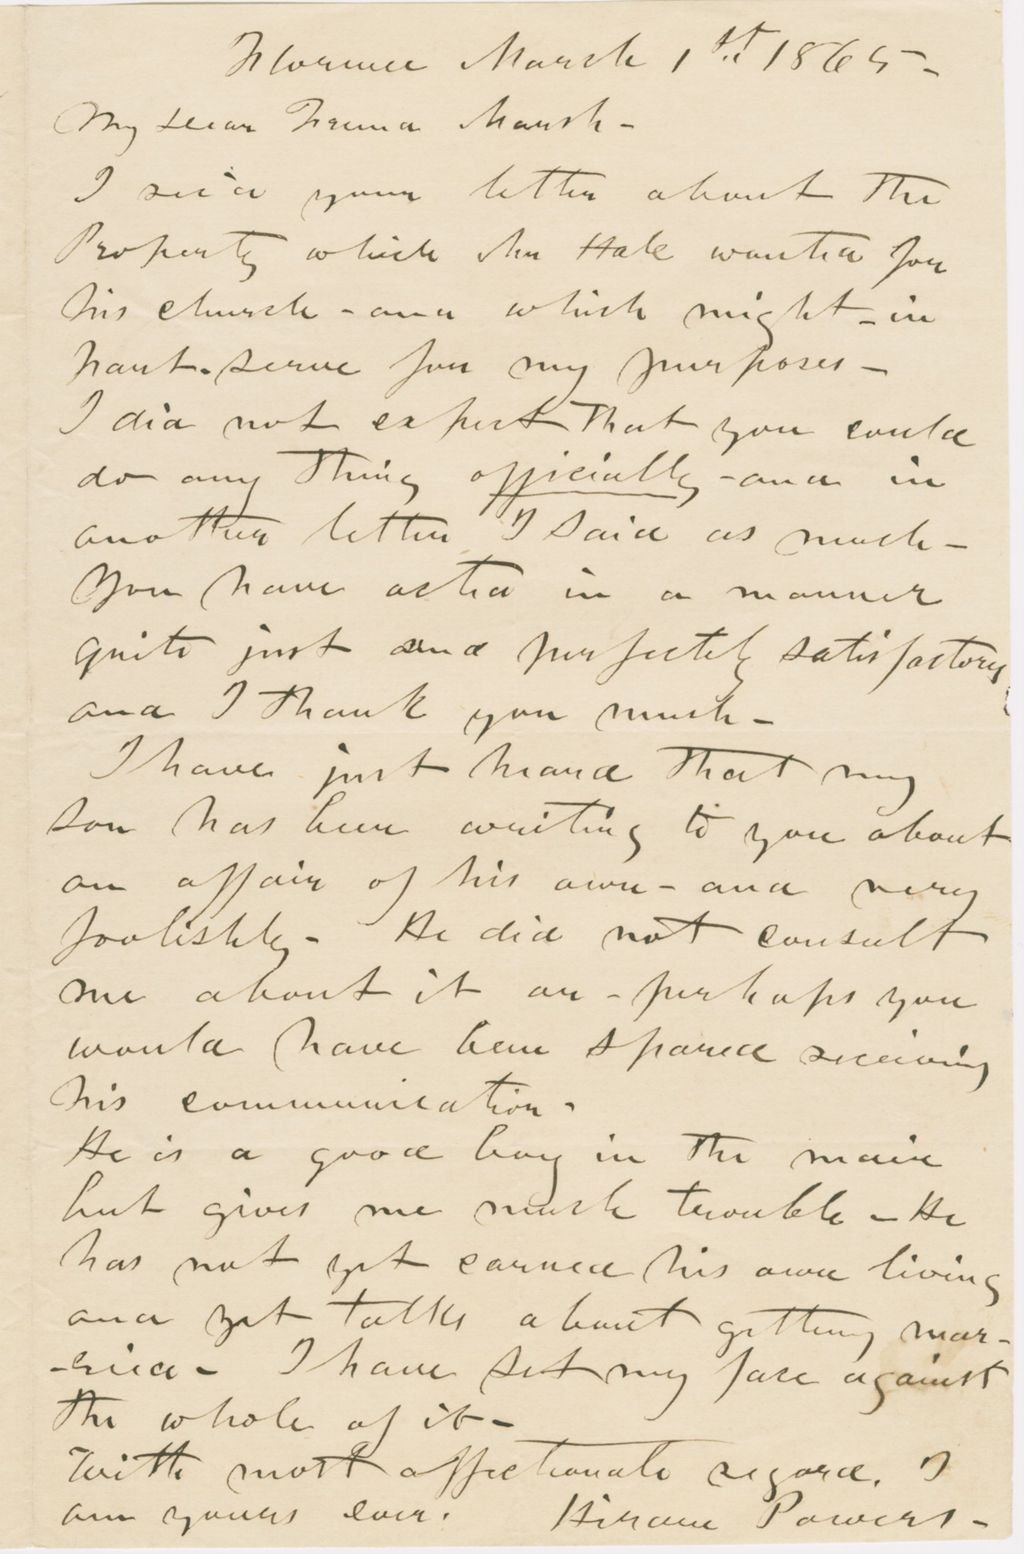 Florence March 1st. 1865-
My dear Friend Marsh-
I rec'd your letter about the
Property which Mr Hale wanted for
his church - and which might - in
part. serve for my purposes -
I did not expect that you could
do any thing officially - and in
another letter I said as much -
You have acted in a manner
quite just and perfectly satisfactory
and I thank you much -
I have just heard that my
son has been writing to you about
an affair of his own - and very
foolishly - He did not consult
me about it or - perhaps you
would have been spared receiving
his communication.
He is a good boy in the main
but gives me much trouble - He
has not yet earned his own living
and yet talks about getting mar-
-ried - I have set my face against
the whole of it -
With most affectionate regard. I
am yours ever. Hiram Powers -